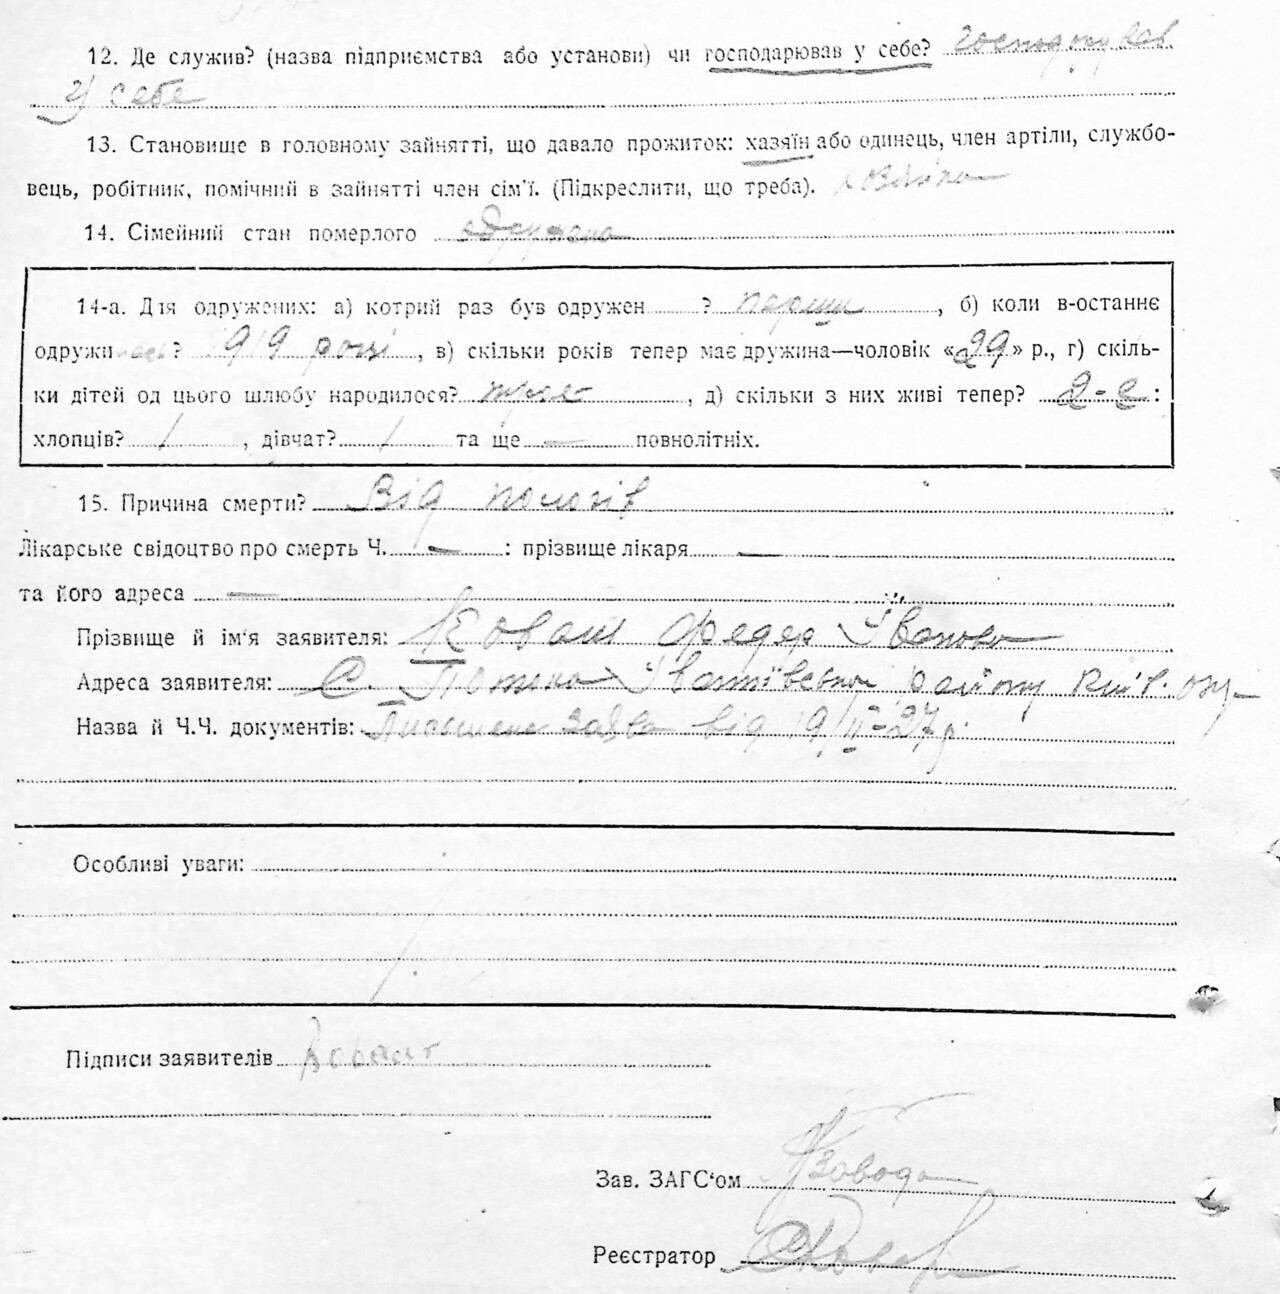 12. Де служив? (назва підприємства або установи) чи господарював у себе? господарував
у себе
13. Становище в головному зайнятті, що давало прожиток: хазяїн або одинець, член артіли, службо-
вець, робітник, помічний в зайнятті член сім'ї. (Підкреслити, що треба).
14. Сімейний стан померлого одружена
14-а. Для одружених: а) котрий раз був одружен ? перший, б) коли в-останнє
одружи ? 1919 році, в) скільки років тепер має дружина—чоловік «29» р., г) скіль-
ки дітей од цього шлюбу народилося? троє, д) скільки з них живі тепер? 2-е:
хлопців? 1, дівчат? 1 та ще — повнолітніх.
15. Причина смерти? Від пологів
Лікарське свідоцтво про смерть Ч. — : прізвище лікаря —
та його адреса —
Прізвище й ім'я заявителя: Федер Іванови
Адреса заявителя: С. району Київ. окр
Назва й Ч.Ч. документів: Письмена заява від 19/II-27 р.
Особливі уваги:
Підписи заявителів
Зав. ЗАГС'ом
Реєстратор